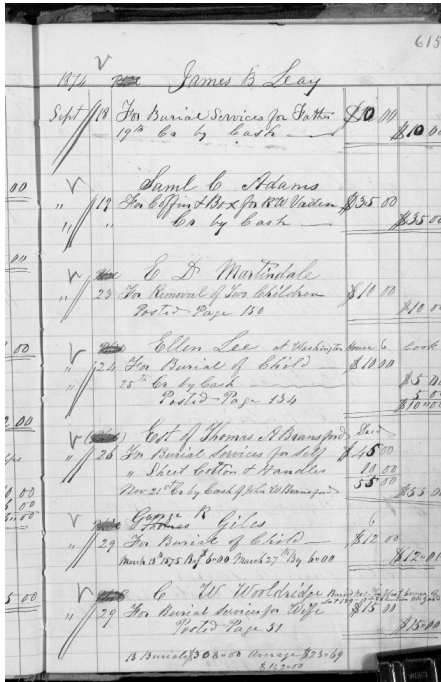 615
1874 James B Leay
Sept 18 For Burial Services for Father $10 00
19th Cr by Cash $10 00
Saml C Adams
" 19 For Coffin & Box for R W Vaden $35 00
" " Cr by Cash $35 00
E D Martindale
" 23 For Removal of Two Children $10 00
Posted Page 150 $10 00
Ellen Lee at Washington House 6 Cook
" 24 For Burial of Child $10 00
25th Cr by Cash $5 00
Posted Page 134 5 00
$10 00
Est of Thomas A Bransford Decd
" 26 For Burial Services for Self $45 00
" Sheet Cotton & Handles 10 00
Nov 21st Cr by Cash of John W Bransford 55 00 $55 00
R Giles 6
" 29 For Burial of Child $12 00
March 13th 1875 By $6=00 March 27th By 6=00 $12=00
C W Wooldridge
" 29 For Burial Services for Wife $15 00
Posted Page 51 $15=00
13 Burials Average